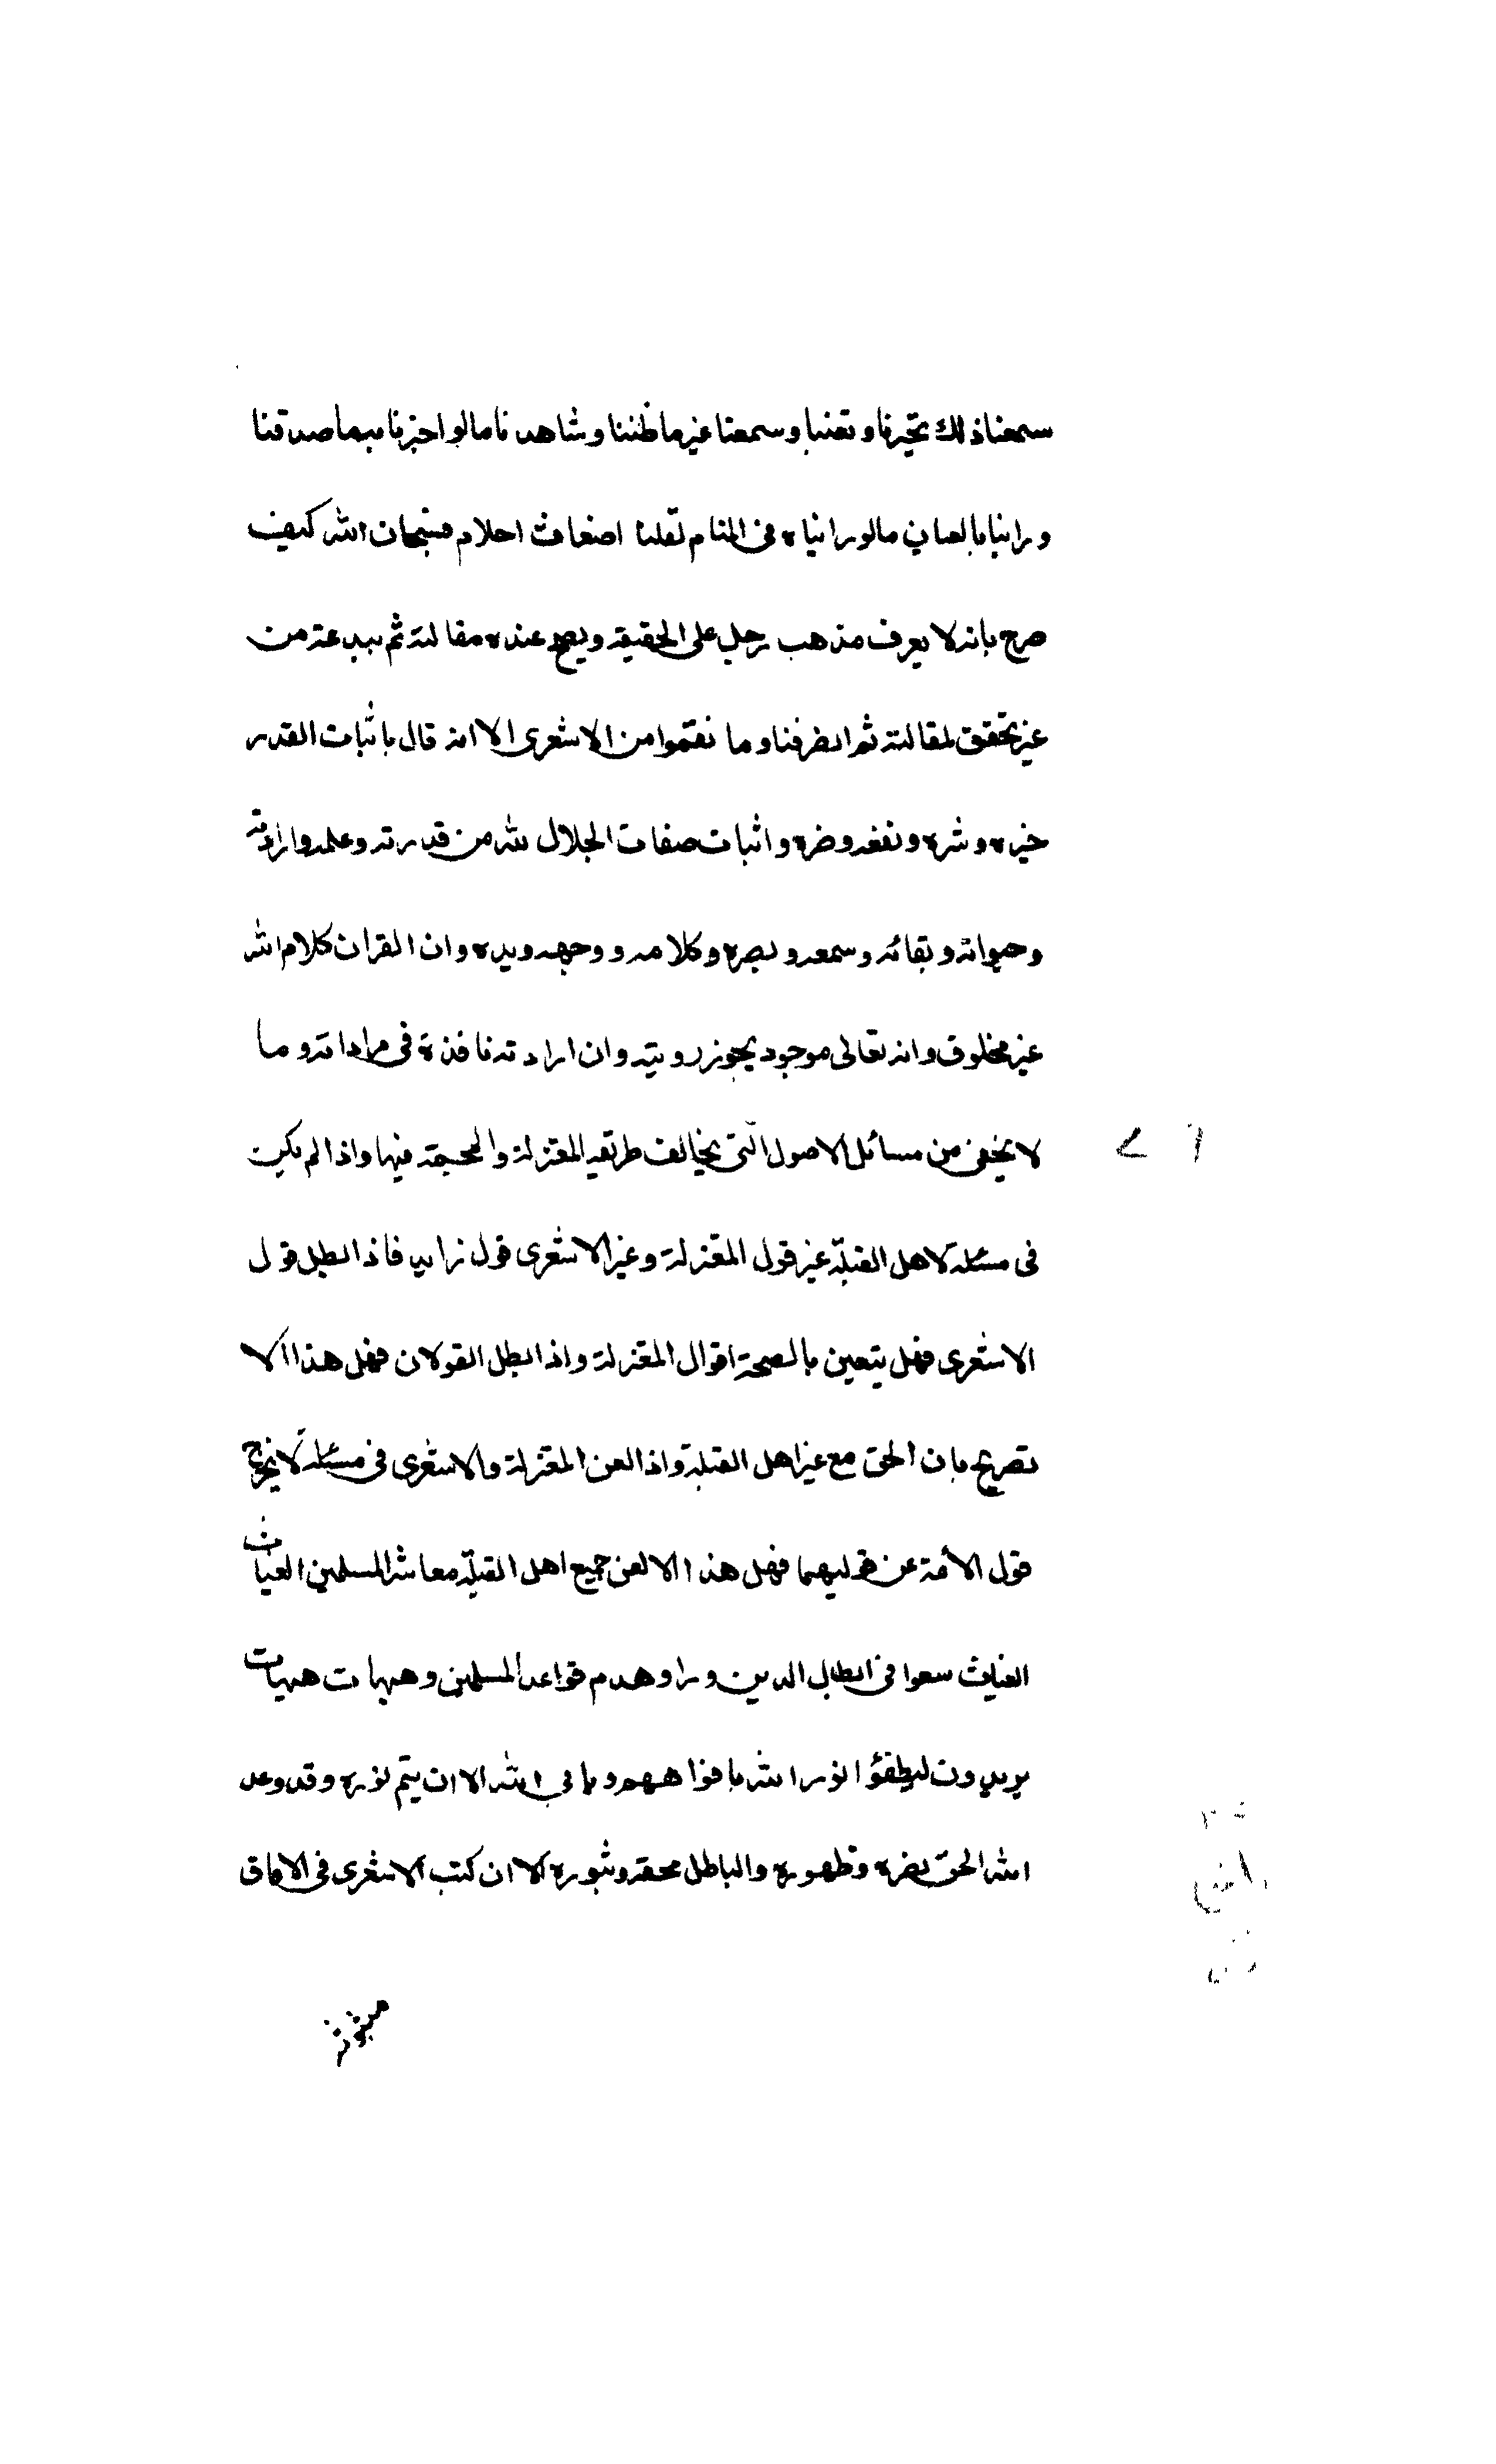 سمعنا ذلك تحيرنا وتعنبا وسمعنا غير ما ظننا وشاهدنا ما لو اخبرنا به ما صدقنا
وراينا بالعيان ما لو رايناه فى المنام لقلنا اضغاث احلام فسبحان الله كيف
صرح بانه لا يعرف مذهب رجل على الحقيقة ويصح عنده مقالته ثم يبدعه من
غير تحقق لمقالته ثم انصرفنا وما نقموا من الاشعرى الا انه قال باثبات القدر
خيره وشره ونفعه وضره واثبات صفات الجلال لله من قدرته وعلمه وارادته
وحيواته وبقائه وسمعه وبصره وكلامه ووجهه ويده وان القران كلام الله
غير مخلوق وانه تعالى موجود يجوز رويته وان ارادته نافذة فى مراداته وما
لا يخفى من مسائل الاصول التى يخالف طريقه المعتزلة والمجسمة فيها واذا لم يكن
فى مسئلة لاهل القبلة غير قول المعتزلة وغير الاشعرى قول زايد فاذا بطل قول
الاشعرى فهل يتعين بالصحة اقوال المعتزلة واذا بطل القولان فهل هذا الا
تصريح بان الحق مع غير اهل القبلة واذا لعن المعتزلة والاشعرى فى مسئلة لا يخرج
قول الأمة عن قوليهما فهل هذا الا لعن جميع اهل القبلة معاشر المسلمين الغياث
الغياث سعوا فى ابطال الدين وراوا هدم قواعد المسلمين وهيهات هيهات
يريدون ليطفؤا نور الله بافواههم ويابى الله الا ان يتم نوره وقد وعد
الله الحق نصره وظهوره والباطل محقه وثبوره الا ان كتب الاشعرى فى الافاق
مبثوثة